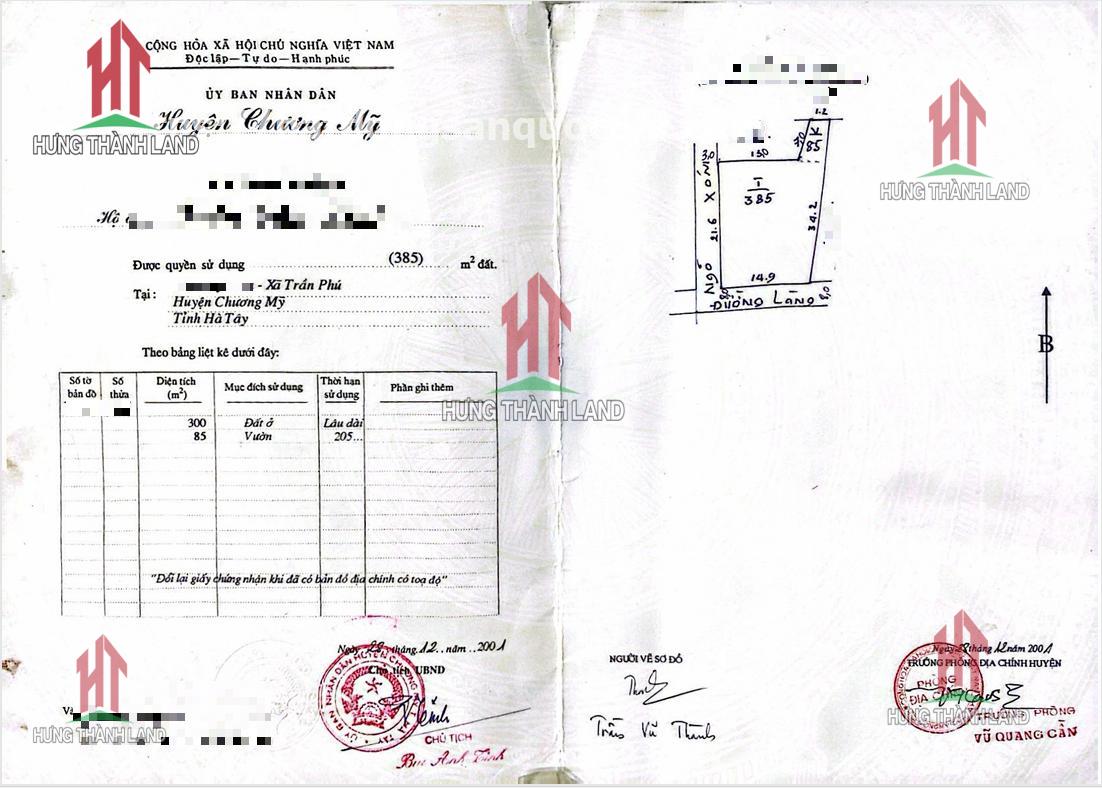 CỘNG HÒA XÃ HỘI CHỦ NGHĨA VIỆT NAM
Độc lập — Tự do — Hạnh phúc
ỦY BAN NHÂN DÂN
Huyện Chương Mỹ
HT
HƯNG THÀNH LAND
Hộ
Được quyền sử dụng (385) m² đất.
Tại : - Xã Trần Phú
Huyện Chương Mỹ
Tỉnh Hà Tây
Theo bảng liệt kê dưới đây:
Số tờ bản đồ Số thửa Diện tích (m²) Mục đích sử dụng Thời hạn sử dụng Phần ghi thêm
300 Đất ở Lâu dài
85 Vườn 205...
"Đổi lại giấy chứng nhận khi đã có bản đồ địa chính có toạ độ"
Ngày 28 tháng 12 năm 2001
Chủ tịch UBND
CHỦ TỊCH
HT
HƯNG THÀNH LAND
HT
HƯNG THÀNH LAND
1.2
7.0
K
85
3.0
13.0
T
385
NGÕ XÓM
21.6
34.2
14.9
8.0
ĐƯỜNG LÀNG
8.0
HT
HƯNG THÀNH LAND
B
NGƯỜI VẼ SƠ ĐỒ
Trần Vũ Thành
Ngày 28 tháng 12 năm 2001
TRƯỞNG PHÒNG ĐỊA CHÍNH HUYỆN
PHÒNG
ĐỊA CHÍNH
TRƯỞNG PHÒNG
VŨ QUANG CẦN
HT
HƯNG THÀNH LAND